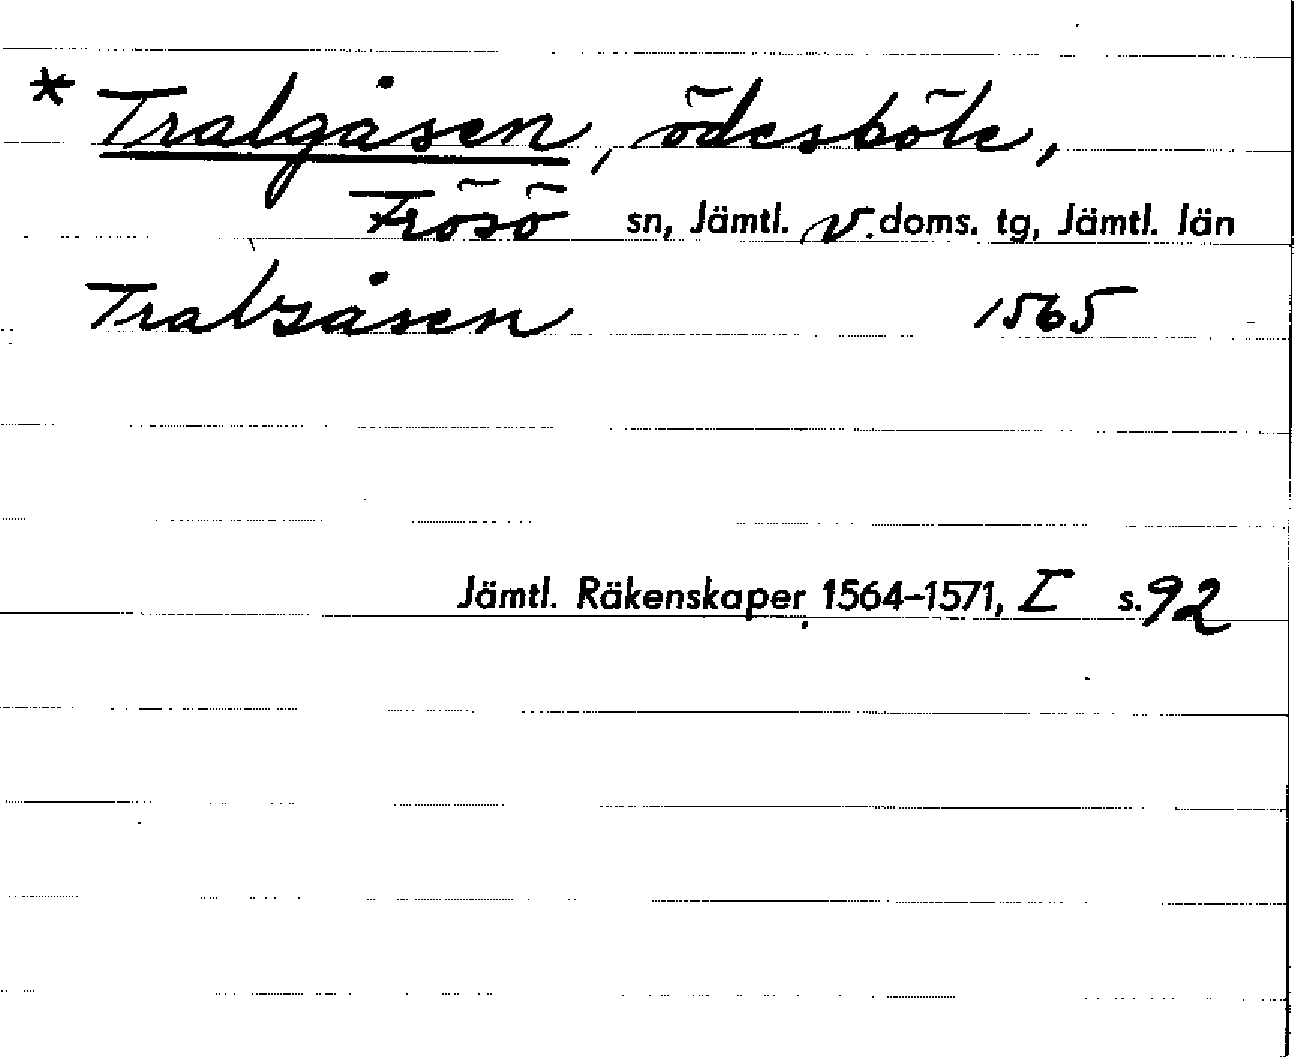 * Tralgåsen, ödesböle,
Frösö sn, Jämtl. v. doms. tg, Jämtl. län
Tralsåsen 1565
Jämtl. Räkenskaper 1564-1571, I s. 92